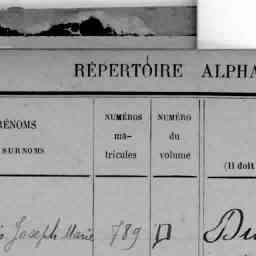 RÉPERTOIRE ALPHA
RÉNOMS
SURNOMS
NUMÉROS
ma-
tricules
NUMÉRO
du
volume
(Il doit
Joseph Marie 789